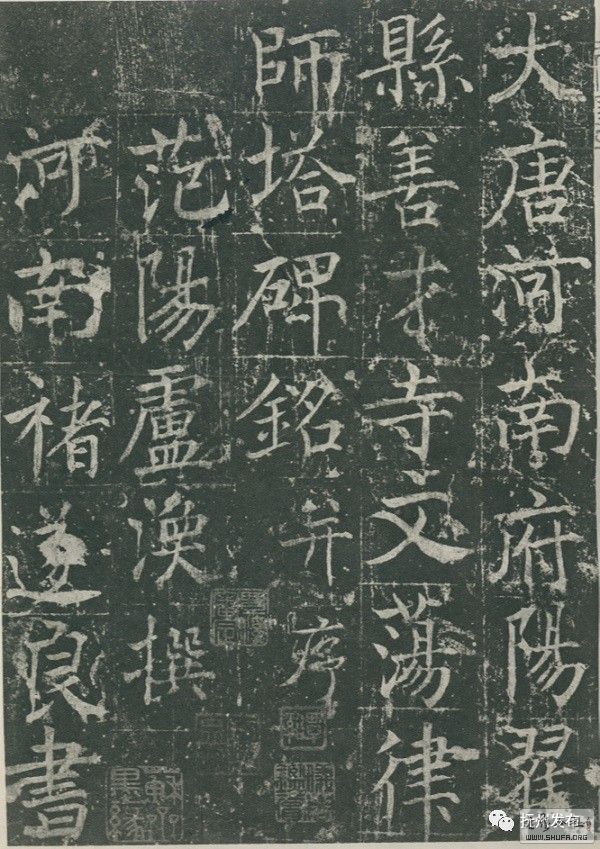 大唐河南府陽翟
縣善才寺文蕩律
師塔碑銘并序
范陽盧渙撰
河南褚遂良書
抚州发布
WWW.SHUFA.ORG